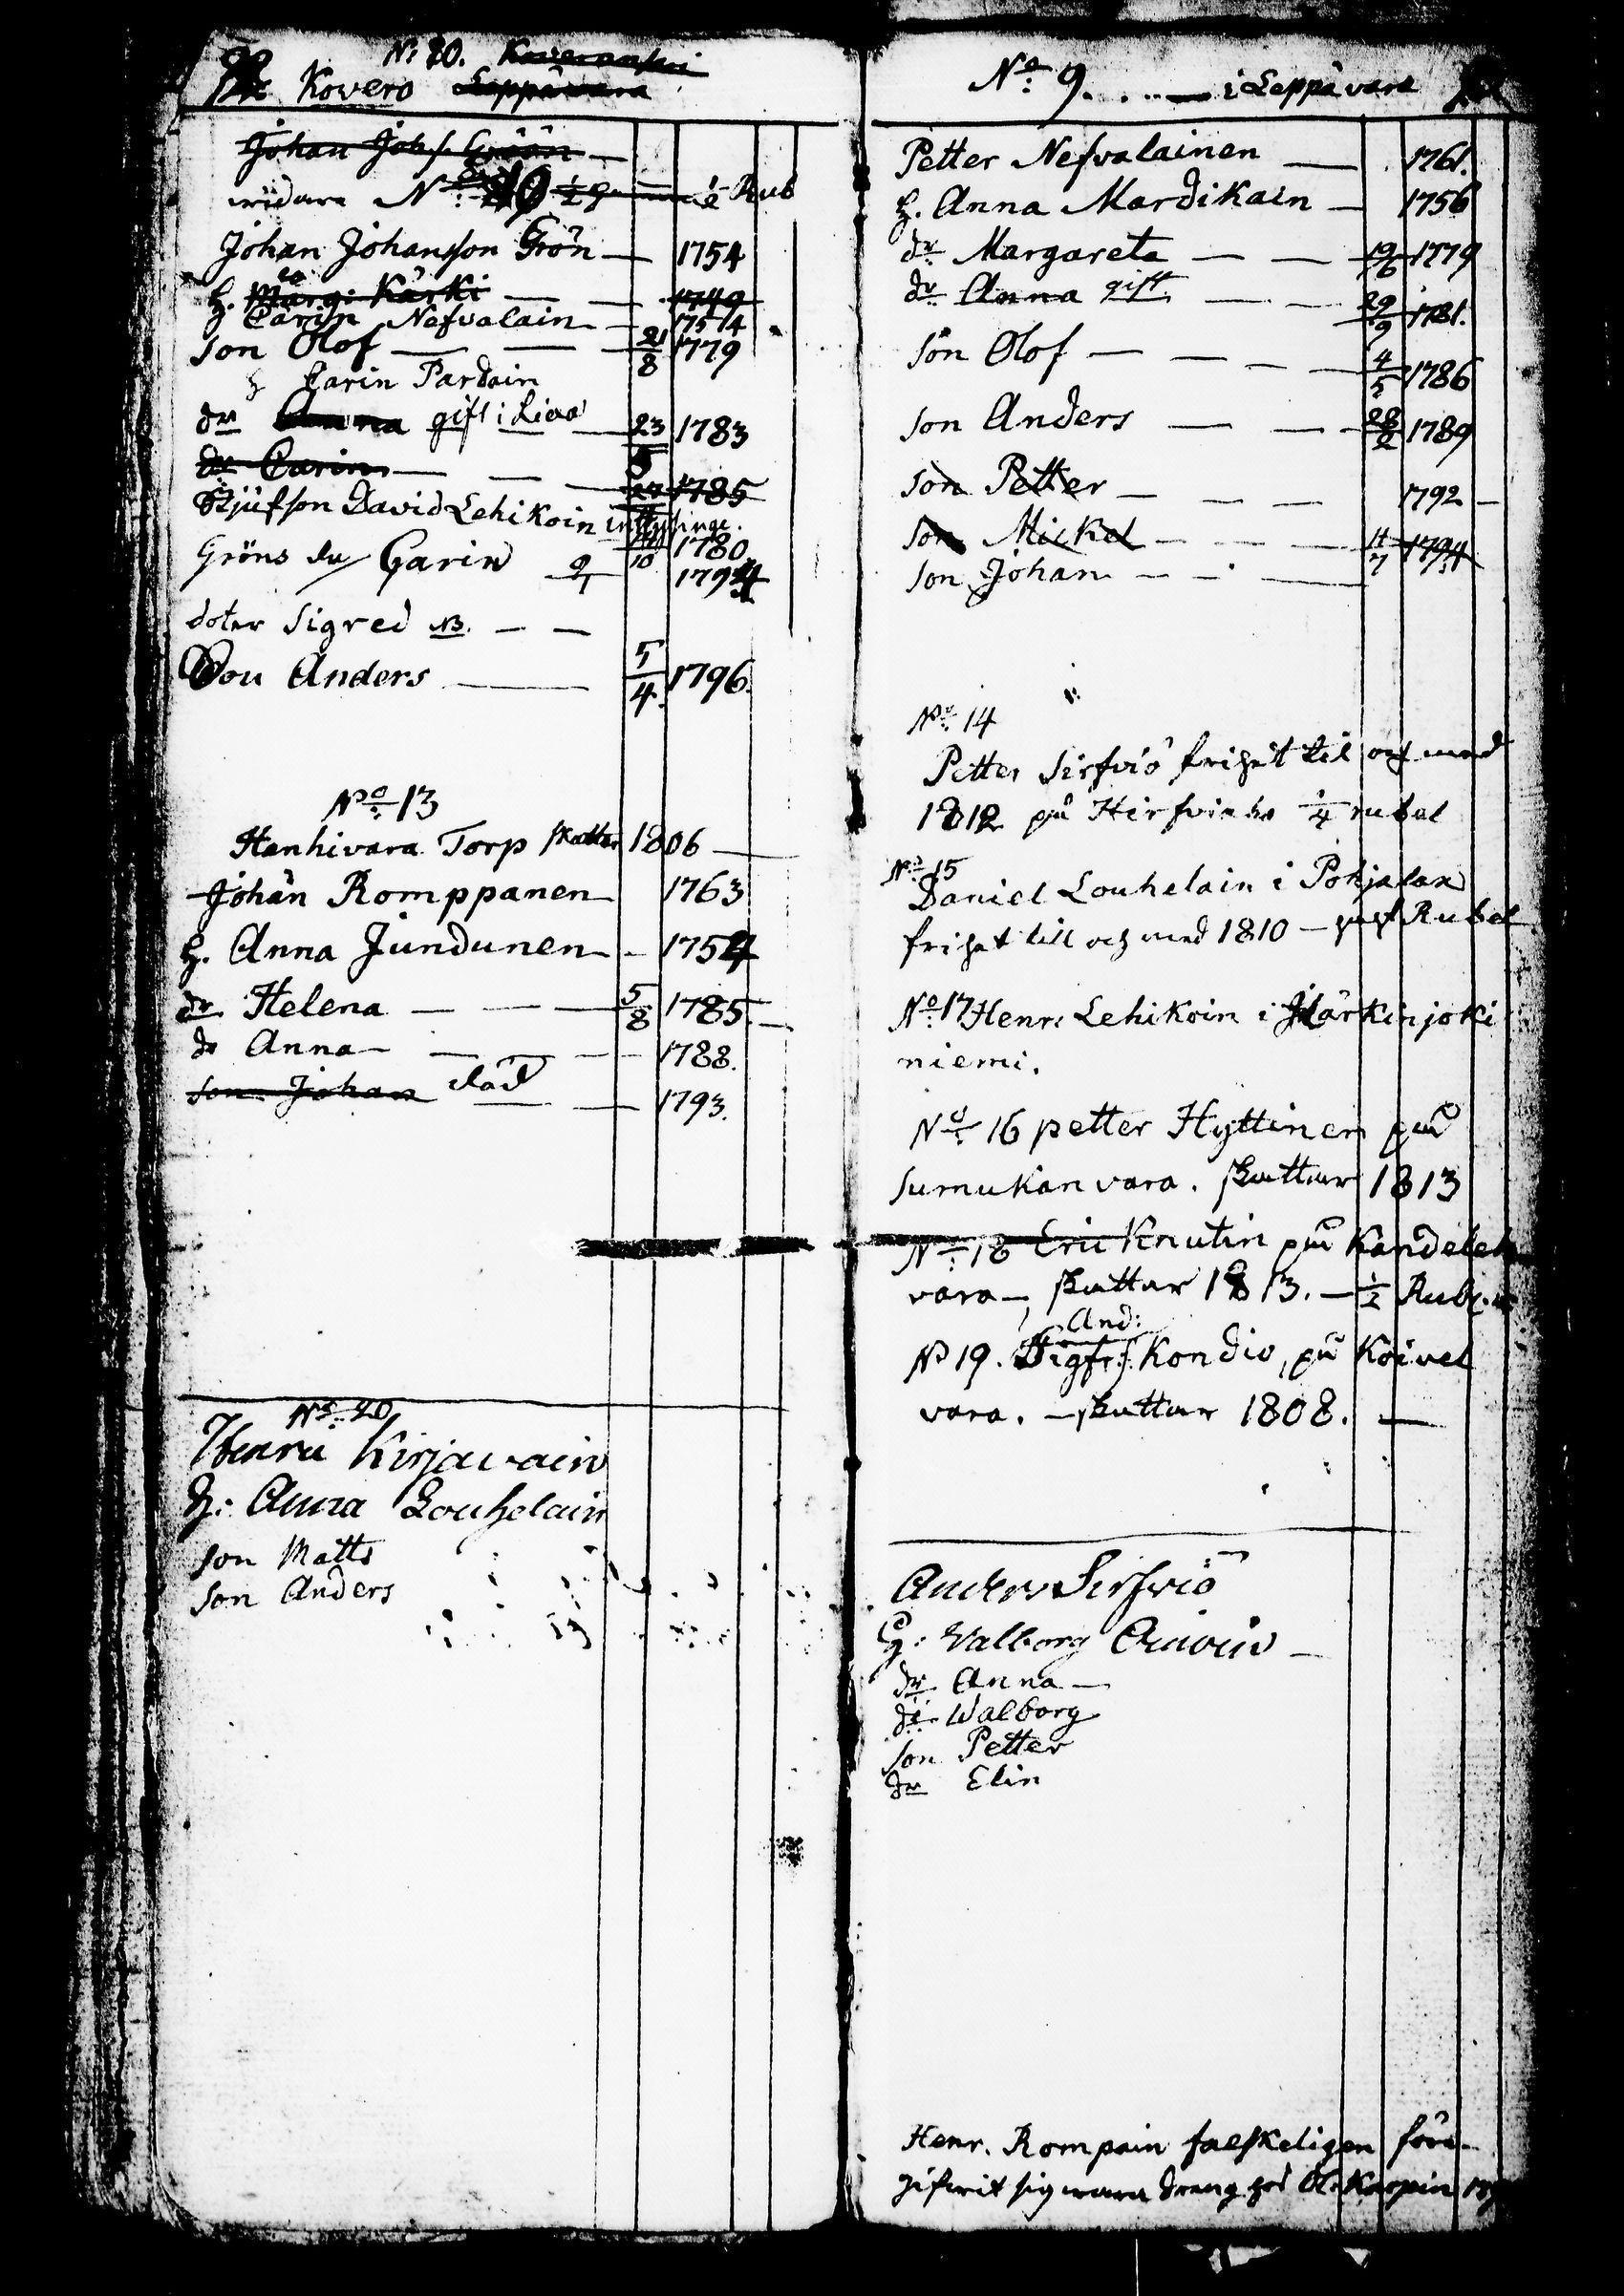 No: 20. Koveronsuu
Kovero Leppävara
Johan Johs. Gröön
widare No: ½ Rub
Johan Johansson Grön — 1754
h. Marg: Kärki — 1749
h Carin Nefvalain — 1754
son Olof — 21/8 1779
h Carin Pardain
dr Anna gift i Liva 23/5 1783
dr Carin — 1785
Stjufson David Lehikoin
10 1780
Gröns dr Carin 9/1 1794
doter Sigred NB. — —
Son Anders — 5/4 1796.
No: 13
Hanhivara Torp skattar 1806 —
Johan Romppanen 1763
h. Anna Jundunen — 1754
dr Helena — — — 5/8 1785.
dr Anna — — — 1788.
son Johan död — 1793.
No: 20
Henric Kirjavain
h: Anna Louhelain
son Matts
son Anders
No: 9. . . . — i Leppävara
Petter Nefvalainen — 1761.
h. Anna Mardikain — 1756
dr Margareta — — 19/6 1779
dr Anna gift — — 29/9 1781.
son Olof — — — 4/5 1786
son Anders — — — 28/2 1789
son Petter — — — 1792 —
son Mickel — — — 11/7 1794
son Johan — — —
No: 14
Petter Sirfviö frihet til och med
1812 på Hirfvi ¼ rubel
No: 15
Daniel Louhelain i Pohja
frihet till och med 1810 — Rubel
No: 17 Henr: Lehikoin i Härkinjoki
niemi.
No: 16 petter Hyttinen på
sumukanvara. skattar 1813
No: 18 Eric Knutin på Kandeleh
vara —, skattar 1813. — ½ Rub.
And:
No 19. Sigfr: Kondio, på Koivel
vara. — skattar 1808. —
Anders Sirfviö
h: Valborg —
dr Anna —
dr Walborg
son Petter
dr Elin
Henr. Rompain falskeligen före-
gifvit sig vara dräng hos Ol: Karpin